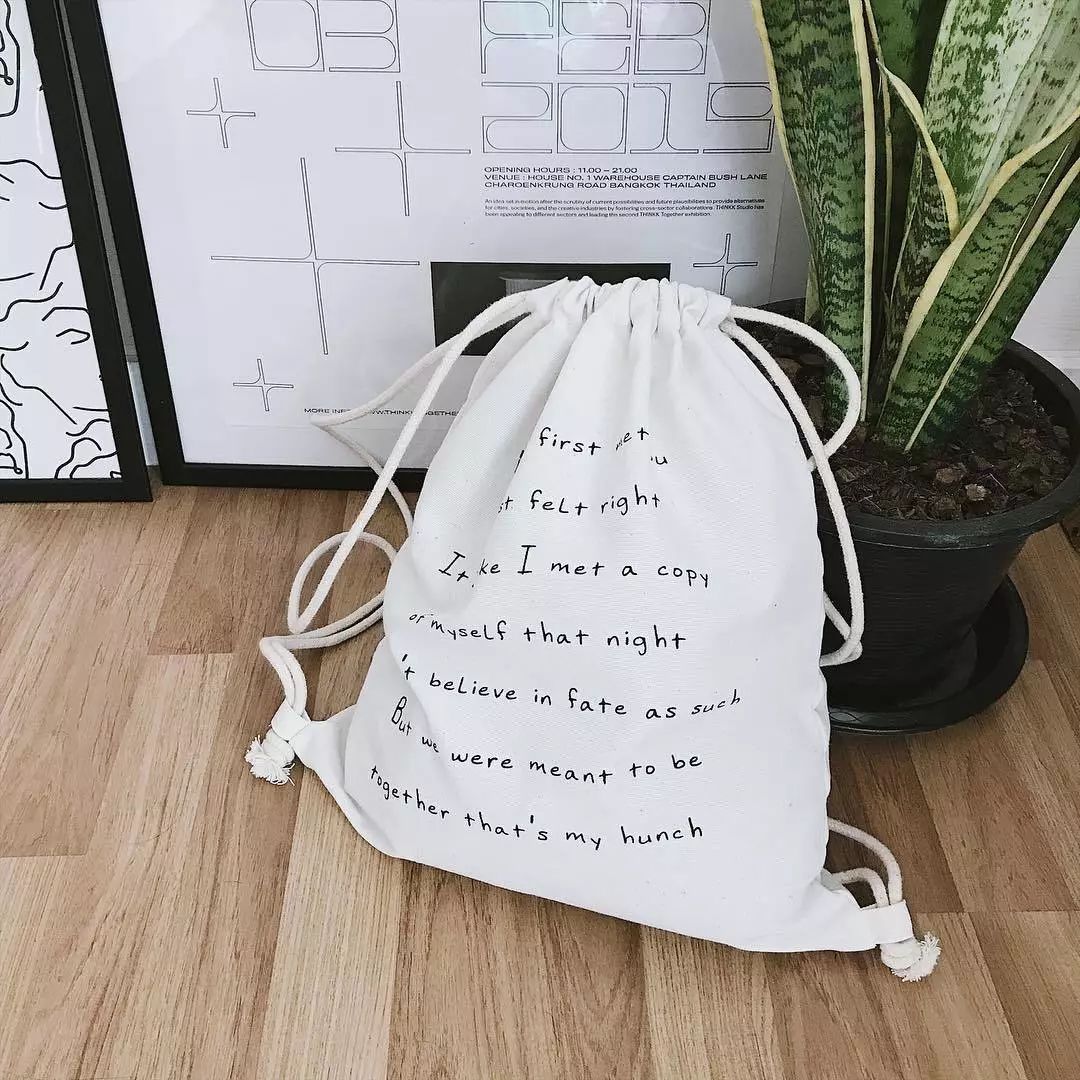 03 FEB
2019
OPENING HOURS : 11.00 – 21.00
VENUE : HOUSE NO. 1 WAREHOUSE CAPTAIN BUSH LANE
CHAROENKRUNG ROAD BANGKOK THAILAND
An idea set in motion after the scrutiny of current possibilities and future plausibilities to provide alternatives
for cities, societies, and the creative industries by fostering cross-sector collaborations. THINKK Studio has
been appealing to different sectors and leading this second THINKK Together exhibition.
MORE
first met
felt right
I met a copy
of myself that night
believe in fate as such
But we were meant to be
together that's my hunch